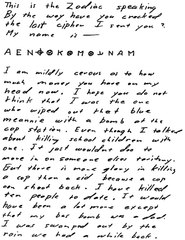 This is the Zodiac speaking
By the way have you cracked
the last cipher I sent you?
My name is —
A E N ⌖ ⊕ K ⊕ M ⊕ ⅃ N A M
I am mildly cerous as to how
much money you have on my
head now. I hope you do not
think that I was the one
who wiped out that blue
meannie with a bomb at the
cop station. Even though I talked
about killing school children with
one. It just wouldnt doo to
move in on someone elses teritory.
But there is more glory in killing
a cop than a cid because a cop
can shoot back. I have killed
ten people to date. It would
have been a lot more except
that my bus bomb was a dud.
I was swamped out by the
rain we had a while back.